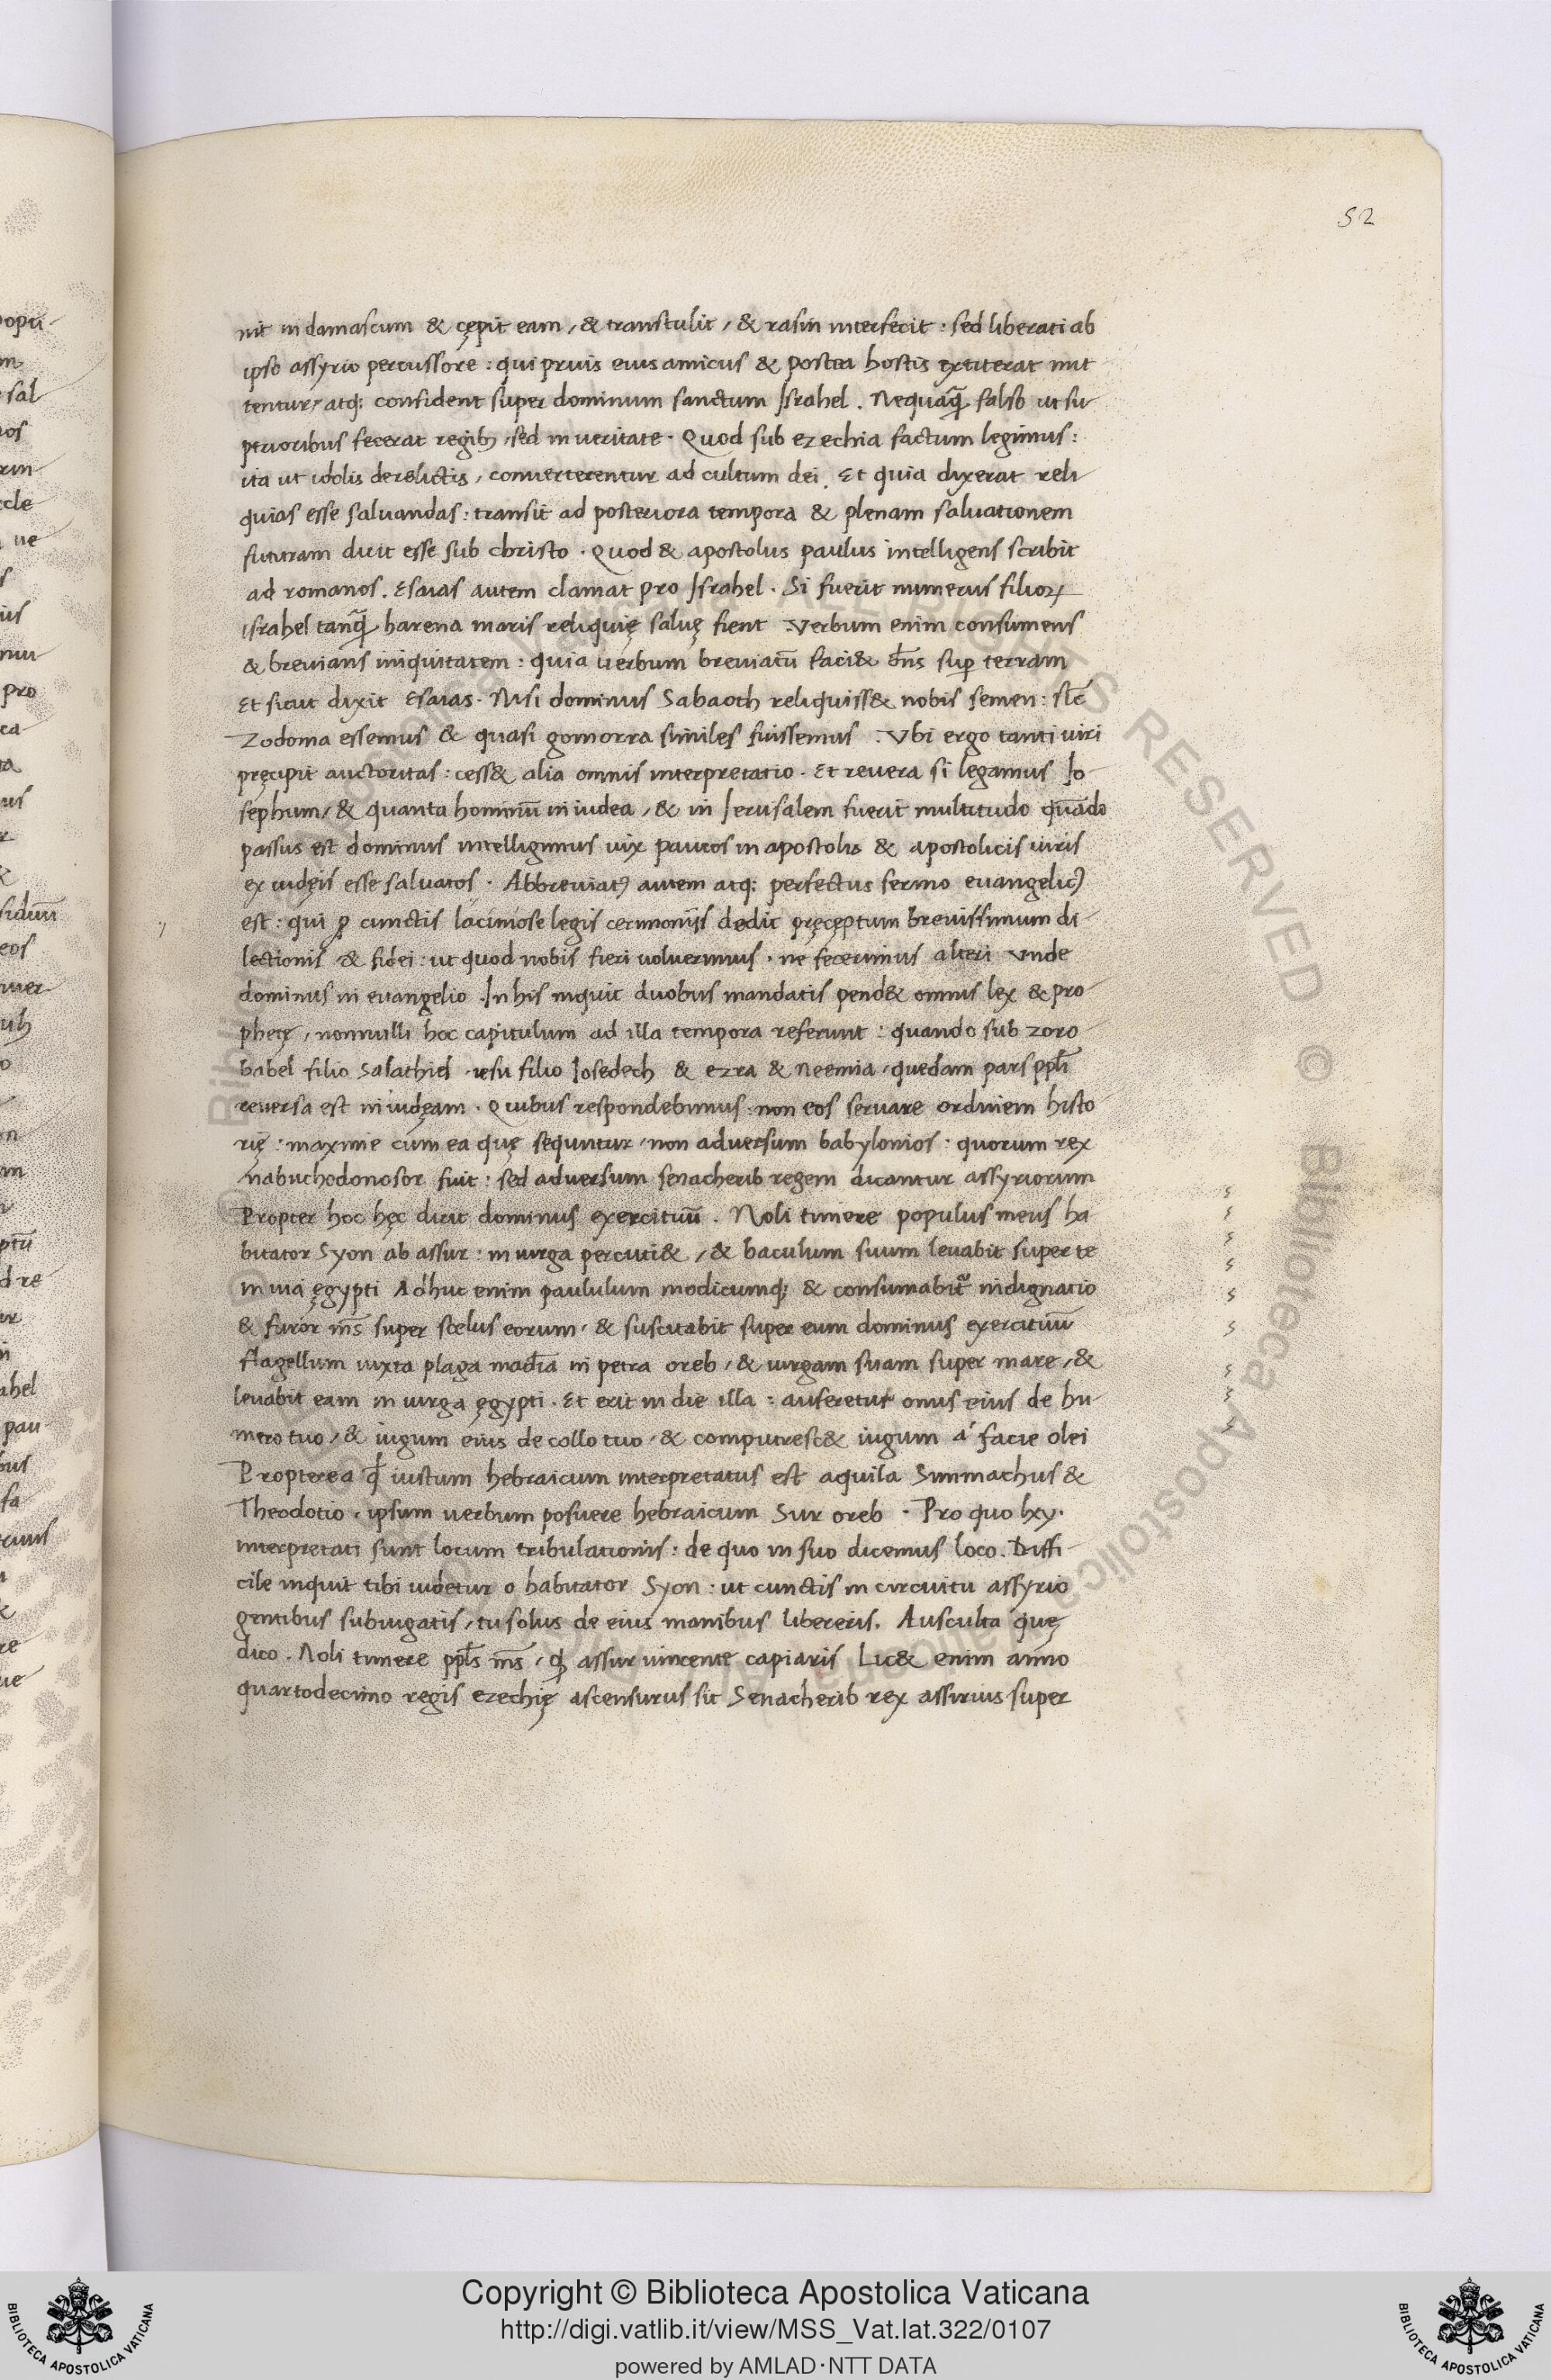 52
nit in damascum & cępit eam, & transtulit, & rasin interfecit: sed liberati ab
ipso assyrio percussore: qui prius eius amicus & postea hostis extiterat nut
tentur, atq; confident super dominum sanctum Israhel. Nequaq̃ falso ut su
perioribus fecerat regib;, sed in ueritate. Quod sub ezechia factum legimus:
ita ut idolis derelictis, conuerterentur ad cultum dei. Et quia dixerat reli
quias esse saluandas: transit ad posteriora tempora & plenam saluationem
futuram dicit esse sub christo. Quod & apostolus paulus intelligens scribit
ad romanos. Esaias autem clamat pro Israhel. Si fuerit numerus filioꝝ
israhel tanq̃ harena maris reliquię saluę fient. Verbum enim consumens
& brevians iniquitatem: quia uerbum breviatū faci& dñs suꝑ terram
Et sicut dixit Esaias. Nisi dominus Sabaoth reliquiss& nobis semen: sic̄
Zodoma essemus & quasi gomorra similes fuissemus. Vbi ergo tanti uiri
pręcipit auctoritas: cess& alia omnis interpretatio. Et reuera si legamus Jo
sephum, & quanta hominū in iudea, & in Jerusalem fuerit multitudo quādo
passus est dominus intelligimus uix paucos in apostolis & apostolicis uiris
ex iudęis esse saluatos. Abbreviatꝰ autem atq; perfectus sermo euangelicꝰ
est: qui ꝓ cunctis laciniose legis cerimoniis dedit pręcęptum brevissimum di
lectionis & fidei: ut quod nobis fieri uoluerimus, ne fecerimus alteri unde
dominus in euangelio. In his inquit duobus mandatis pend& omnis lex & pro
phetę, nonnulli hoc capitulum ad illa tempora referunt: quando sub zoro
babel filio Salathiel, iesu filio Josedech & ezra & Neemia, quedam pars ppłi
reuersa est in iudęam. Quibus respondebimus: non eos seruare ordinem histo
rię: maxime cum ea quę sequntur, non aduersum babylonios: quorum rex
nabuchodonosor fuit: sed aduersum senacherib regem dicantur assyriorum
Propter hoc hęc dicit dominus exercituū. Noli timere populus meus ha
bitator Syon ab assur: in uirga percuti&, & baculum suum leuabit super te
in uia ęgypti Adhuc enim paululum modicumq; & consumabit᷑ indignatio
& furor m̄s super scelus eorum, & suscitabit super eum dominus exercituū
flagellum iuxta plaga madīa in petra oreb, & uirgam suam super mare, &
leuabit eam in uirga ęgypti. Et erit in die illa: auferetur onus eius de hu
mero tuo, & iugum eius de collo tuo, & computresc& iugum á facie olei
Propterea qđ iustum hebraicum interpretatus est aquila Simmachus &
Theodotio, ipsum uerbum posuere hebraicum Sur oreb. Pro quo lxx.
interpretati sunt locum tribulationis: de quo in suo dicemus loco. Diffi
cile inquit tibi uidetur o habitator Syon: ut cunctis in circuitu assyrio
gentibus subiugatis, tu solus de eius manibus libereris. Ausculta quę
dico. Noli timere ppłs m̄s, qđ assur uincente capiaris Lic& enim anno
quartodecimo regis ezechię ascensurus sit Senacherib rex assirius super
Copyright © Biblioteca Apostolica Vaticana
http://digi.vatlib.it/view/MSS_Vat.lat.322/0107
powered by AMLAD·NTT DATA
BIBLIOTECA APOSTOLICA VATICANA
BIBLIOTECA APOSTOLICA VATICANA